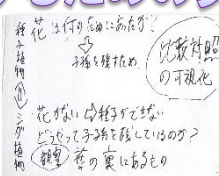 花は何の為にあるか?
子孫を残すため
比較対照
の可視化
種子植物
シダ植物
花がない⇨種子ができない
どうやって子孫を残しているのか?
観察 葉の裏にあるもの